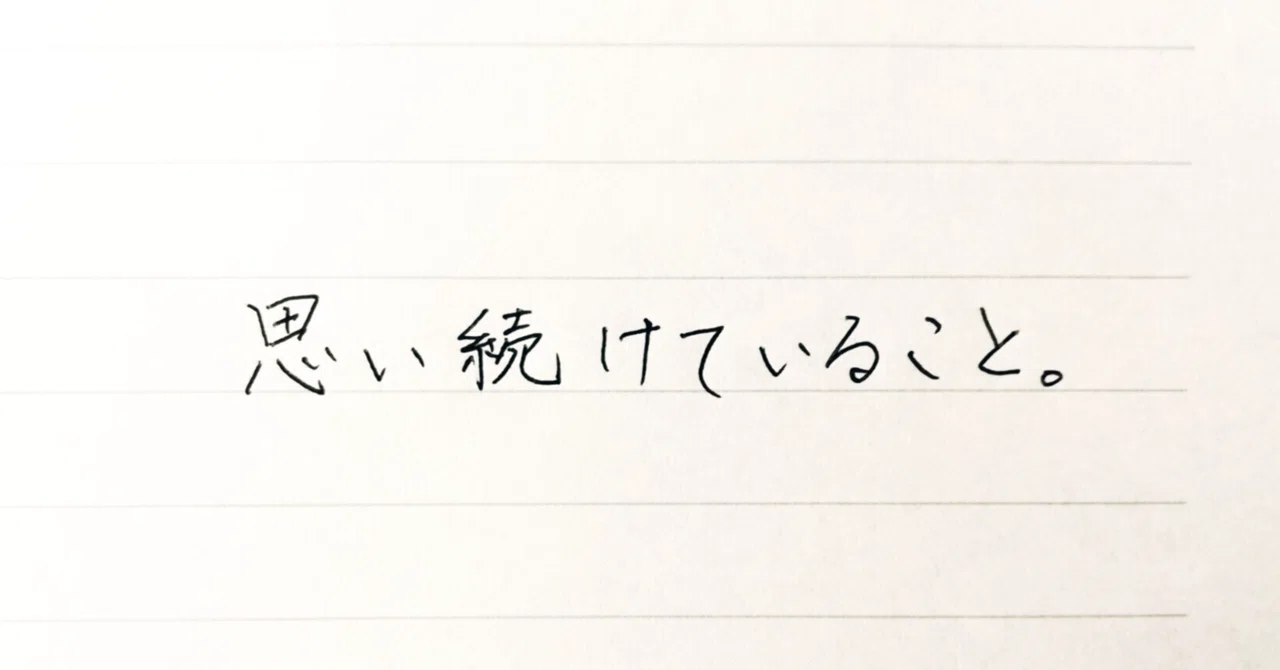 思い続けていること。